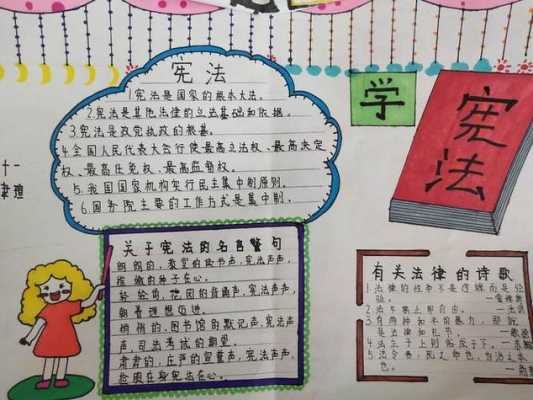 宪法
1.宪法是国家的根本大法。
2.宪法是其他法律的立法基础和依据。
3.宪法是政党执政的根基。
4.全国人民代表大会行使最高立法权、最高决定
权、最高任免权、最高监督权。
5.我国国家机构实行民主集中制原则。
6.国务院主要的工作方式是集中制。
十一
学
宪法
关于宪法的名言警句
朗朗的,教室的读书声,宪法声声,
的种子在心。
轻轻的,花园的音涌声,宪法声声,
朝着理想迈进。
悄悄的,图书馆的默记声,宪法声
声,司法考试的期望。
肃肃的,庄严的宣誓声,宪法声声,
在身宪法在心。
有关法律的诗歌
1.法律的生命不是逻辑而是经
验。
2.法
3.有两种和平的暴力,那就
是法律和礼节。
4.法
5.法令者,民之命也,为治之本
也。